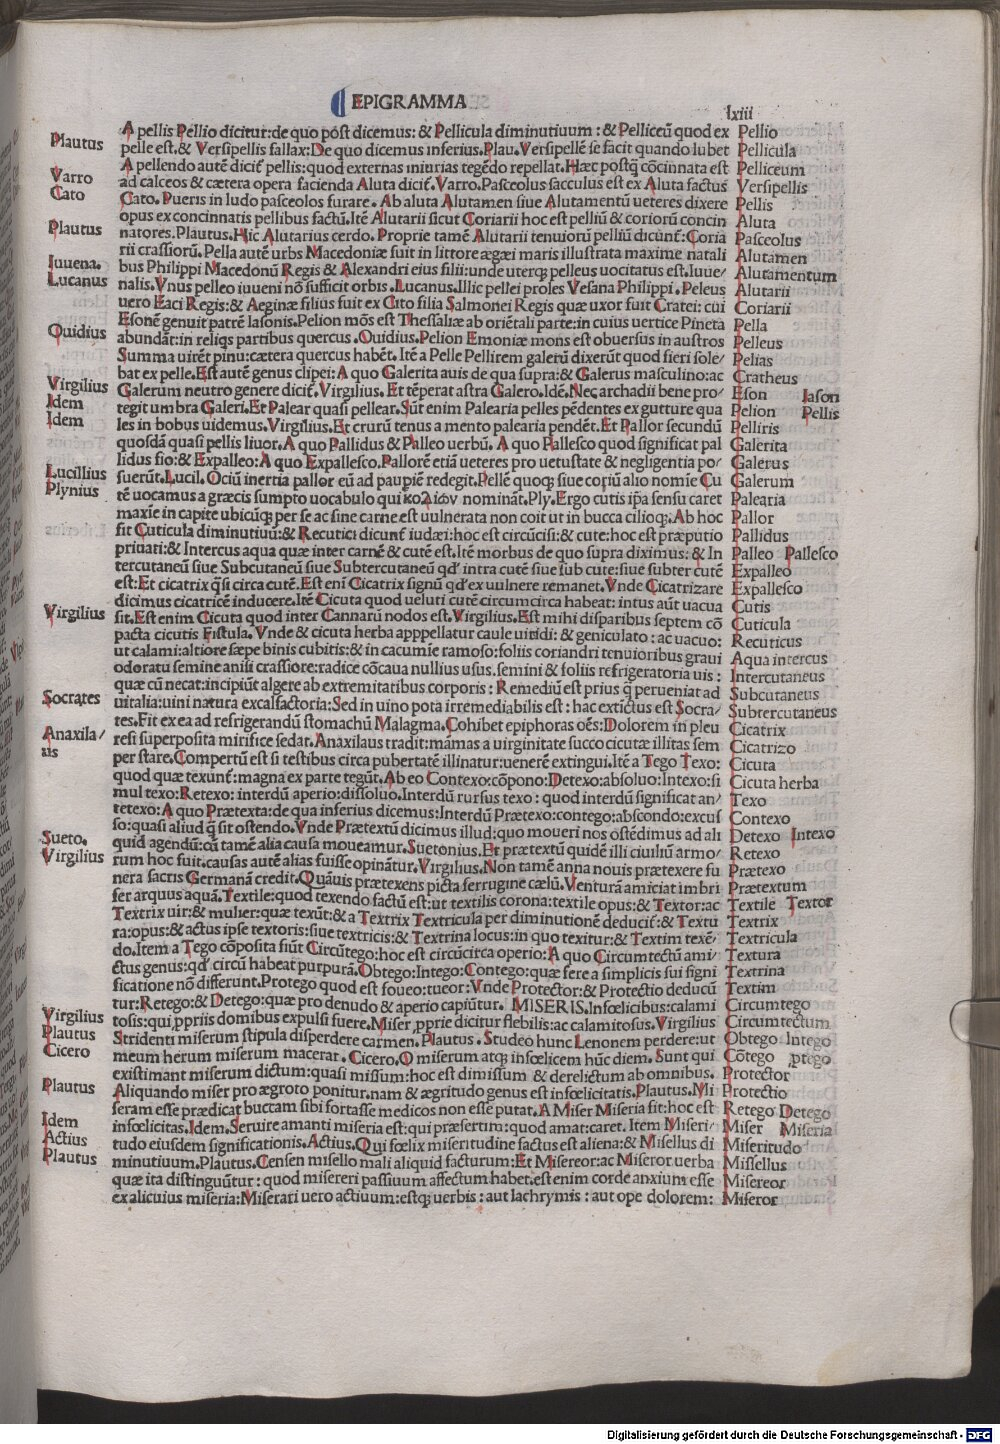 EPIGRAMMA
lxiii
A pellis Pellio dicitur: de quo post dicemus: & Pellicula diminutiuum: & Pelliceū quod ex
pelle est. & Versipellis fallax: De quo dicemus inferius. Plau. Versipellē se facit quando lubet
A pellendo autē dicit᷑ pellis: quod externas iniurias tegēdo repellat. Hæc postq̄ cōcinnata est
ad calceos & cætera opera facienda Aluta dicit᷑. Varro. Pasceolus sacculus est ex Aluta factus
Cato. Pueris in ludo pasceolos furare. Ab aluta Alutamen siue Alutamentū ueteres dixere
opus ex concinnatis pellibus factū. Itē Alutarii sicut Coriarii hoc est pelliū & coriorū concin
natores. Plautus. Hic Alutarius cerdo. Proprie tamē Alutarii tenuiorū pelliū dicunt᷑: Coria
rii crassiorū. Pella autē urbs Macedoniæ fuit in littore ægæi maris illustrata maxime natali
bus Philippi Macedonū Regis & Alexandri eius filii: unde uterq; pelleus uocitatus est. Iuue/
nalis. Vnus pelleo iuueni nō sufficit orbis. Lucanus. Illic pellei proles Vesana Philippi. Peleus
uero Eaci Regis: & Aeginæ filius fuit ex Cito filia Salmonei Regis quæ uxor fuit Cratei: cui
Esonē genuit patrē Iasonis. Pelion mōs est Thessaliæ ab oriētali parte: in cuius uertice Pineta
abundāt: in reliqs partibus quercus. Ouidius. Pelion Emoniæ mons est obuersus in austros
Summa uirēt pinu: cætera quercus habēt. Itē a Pelle Pellirem galerū dixerūt quod fieri sole/
bat ex pelle. Est autē genus clipei: A quo Galerita auis de qua supra: & Galerus masculino: ac
Galerum neutro genere dicit᷑. Virgilius. Et tēperat astra Galero. Idē. Nec archadii bene pro/
tegit umbra Galeri. Et Palear quasi pellear. Sūt enim Palearia pelles pēdentes ex gutture qua
les in bobus uidemus. Virgilius. Et crurū tenus a mento palearia pendēt. Et Pallor secundū
quosdā quasi pellis liuor. A quo Pallidus & Palleo uerbū. A quo Pallesco quod significat pal
lidus fio: & Expalleo: A quo Expallesco. Pallorē etiā ueteres pro uetustate & negligentia po/
suerūt. Lucil. Ociū inertia pallor eū ad paupiē redegit. Pellē quoq; siue coriū alio nomie Cu
tē uocamus a græcis sumpto uocabulo qui κολιον nomināt. Ply. Ergo cutis ip̄a sensu caret
maxīe in capite ubicūq; per se ac sine carne est uulnerata non coit ut in bucca cilioq;. Ab hoc
fit Cuticula diminutiuū: & Recutici dicunt᷑ iudæi: hoc est circūcisi: & cute: hoc est præputio
priuati: & Intercus aqua quæ inter carnē & cutē est. Itē morbus de quo supra diximus: & In
tercutaneū siue Subcutaneū siue Subtercutaneū qd' intra cutē siue sub cute: siue subter cutē
est: Et cicatrix q̄si circa cutē. Est eni Cicatrix signū qd' ex uulnere remanet. Vnde Cicatrizare
dicimus cicatricē inducere. Itē Cicuta quod ueluti cutē circumcirca habeat: intus aūt uacua
sit. Est enim Cicuta quod inter Cannarū nodos est. Virgilius. Est mihi disparibus septem cō
pacta cicutis Fistula. Vnde & cicuta herba apppellatur caule uiridi: & geniculato: ac uacuo:
ut calami: altiore sæpe binis cubitis: & in cacumīe ramoso: foliis coriandri tenuioribus graui
odoratu semine anisi crassiore: radice cōcaua nullius usus. semini & foliis refrigeratoria uis:
quæ cū necat: incipiūt algere ab extremitatibus corporis: Remediū est prius q̄ perueniat ad
uitalia: uini natura excalfactoria: Sed in uino pota irremediabilis est: hac extictus est Socra/
tes. Fit ex ea ad refrigerandū stomachū Malagma. Cohibet epiphoras oēs: Dolorem in pleu
resi superposita mirifice sedat. Anaxilaus tradit: māmas a uirginitate succo cicutæ illitas sem
per stare. Compertū est si testibus circa pubertatē illinatur: uenerē extingui. Itē a Tego Texo:
quod quæ texunt᷑: magna ex parte tegūt. Ab eo Contexo: cōpono: Detexo: absoluo: Intexo: si
mul texo: Retexo: interdū aperio: dissoluo. Interdū rursus texo: quod interdū significat an/
tetexo: A quo Prætexta: de qua inferius dicemus: Interdū Prætexo: contego: abscondo: excus
so: quasi aliud q̄ sit ostendo. Vnde Prætextū dicimus illud: quo moueri nos ostēdimus ad ali
quid agendū: cū tamē alia causa moueamur. Suetonius. Et prætextū quidē illi ciuiliū armo/
rum hoc fuit. causas autē alias fuisse opināt᷑ur. Virgilius. Non tamē anna nouis prætexere fu
nera sacris Germanā credit. Quāuis prætexens picta ferrugine cælū. Venturā amiciat imbri
fer arquus aquā. Textile: quod texendo factū est: ut textilis corona: textile opus: & Textor: ac
Textrix uir: & mulier: quæ texūt: & a Textrix Textricula per diminutionē deducit᷑: & Textu
ra: opus: & actus ipse textoris: siue textricis: & Textrina locus: in quo texitur: & Textim texē/
do. Item a Tego cōposita sūt Circūtego: hoc est circūcirca operio: A quo Circumtectū ami/
ctus genus: qd' circū habeat purpurā. Obtego: Intego: Contego: quæ fere a simplicis sui signi
ficatione nō differunt. Protego quod est foueo: tueor: Vnde Protector: & Protectio deducū
tur: Retego: & Detego: quæ pro denudo & aperio capiūtur. MISERIS. Infœlicibus: calami
tosis: qui ꝓpriis domibus expulsi fuere. Miser ꝓprie dicitur flebilis: ac calamitosus. Virgilius
Stridenti miserum stipula disperdere carmen. Plautus. Studeo hunc Lenonem perdere: ut
meum herum miserum macerat. Cicero. O miserum atq; infœlicem hūc diem. Sunt qui
existimant miserum dictum: quasi missum: hoc est dimissum & derelictum ab omnibus.
Aliquando miser pro ægroto ponitur. nam & ægritudo genus est infœlicitatis. Plautus. Mi
seram esse prædicat buccam sibi fortasse medicos non esse putat. A Miser Miseria fit: hoc est
infœlicitas. Idem. Seruire amanti miseria est: qui præsertim: quod amat: caret. Item Miseri/
tudo eiusdem significationis. Actius. Qui fœlix miseritudine factus est aliena: & Misellus di
minutiuum. Plautus. Censen misello mali aliquid facturum: Et Misereor: ac Miseror uerba
quæ ita distinguūtur: quod misereri passiuum affectum habet. est enim corde anxium esse
ex alicuius miseria: Miserari uero actiuum: estq; uerbis: aut lachrymis: aut ope dolorem:
Plautus
Varro
Cato
Plautus
Iuuena.
Lucanus
Ouidius
Virgilius
Idem
Idem
Lucillius
Plynius
Virgilius
Socrates
Anaxila/
us
Sueto.
Virgilius
Virgilius
Plautus
Cicero
Plautus
Idem
Actius
Plautus
Pellio
Pellicula
Pelliceum
Versipellis
Pellis
Aluta
Pasceolus
Alutamen
Alutamentum
Alutarii
Coriarii
Pella
Pelleus
Pelias
Cratheus
Eson Iason
Pelion Pellis
Pelliris
Galerita
Galerus
Galerum
Palearia
Pallor
Pallidus
Palleo Pallesco
Expalleo
Expallesco
Cutis
Cuticula
Recuticus
Aqua intercus
Intercutaneus
Subcutaneus
Subtercutaneus
Cicatrix
Cicatrizo
Cicuta
Cicuta herba
Texo
Contexo
Detexo Intexo
Retexo
Prætexo
Prætextum
Textile Textor
Textrix
Textricula
Textura
Textrina
Textim
Circumtego
Circumtectum
Obtego Intego
Cōtego ꝓtego
Protector
Protectio
Retego Detego
Miser Miseria
Miseritudo
Missellus
Misereor
Miseror
Digitalisierung gefördert durch die Deutsche Forschungsgemeinschaft - DFG